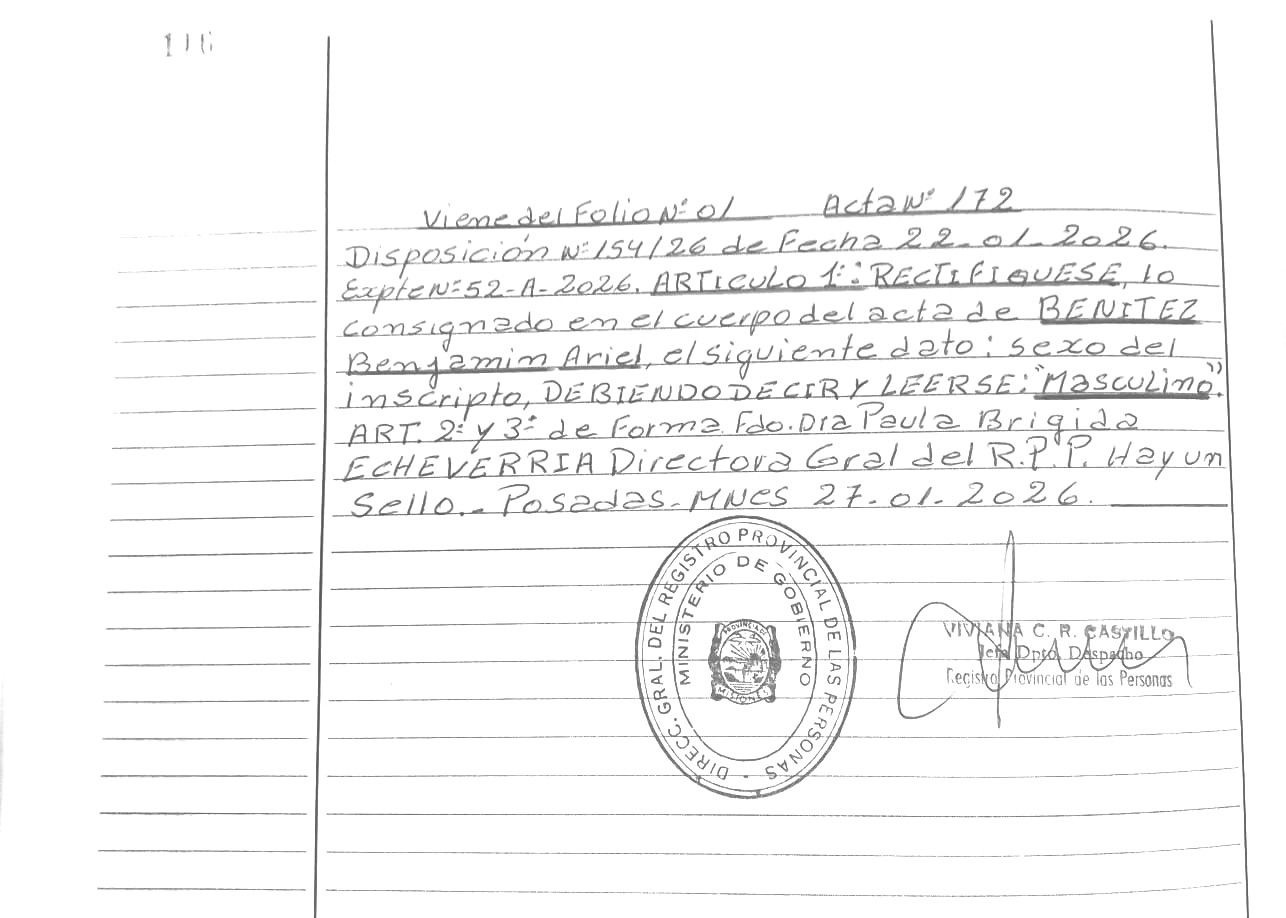 116
Viene del Folio Nº 01 Acta Nº 172
Disposición Nº 154/26 de Fecha 22-01-2026.
Expte Nº 52-A-2026. ARTICULO 1º: RECTIFIQUESE, lo
consignado en el cuerpo del acta de BENITEZ
Benjamin Ariel, el siguiente dato: sexo del
inscripto, DEBIENDO DECIR Y LEERSE: "Masculino".
ART. 2º y 3º de Forma Fdo. Dra Paula Brigida
ECHEVERRIA Directora Gral del R.P.P. Hay un
Sello.- Posadas-MNes 27-01-2026.
DIRECC. GRAL. DEL REGISTRO PROVINCIAL DE LAS PERSONAS -
MINISTERIO DE GOBIERNO
PROVINCIA DE
MISIONES
VIVIANA C. R. CASTILLO
Jefa Dpto. Despacho
Registro Provincial de las Personas